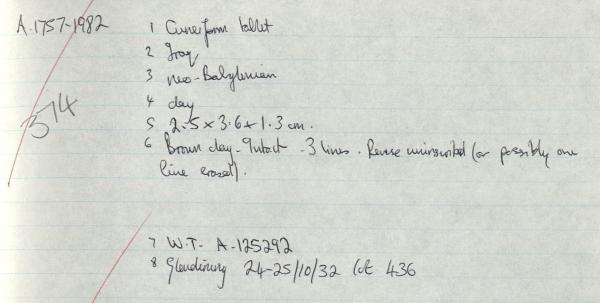 A.1757-1982 1 Cuneiform tablet
2 Iraq
3 neo-Babylonian
374
4 clay
5 2.5 x 3.6 x 1.3 cm.
6 Brown clay. Intact - 3 lines. Reverse uninscribed (or possibly one
line erased).
7 W.T. A-125292
8 Glendining 24-25/10/32 lot 436